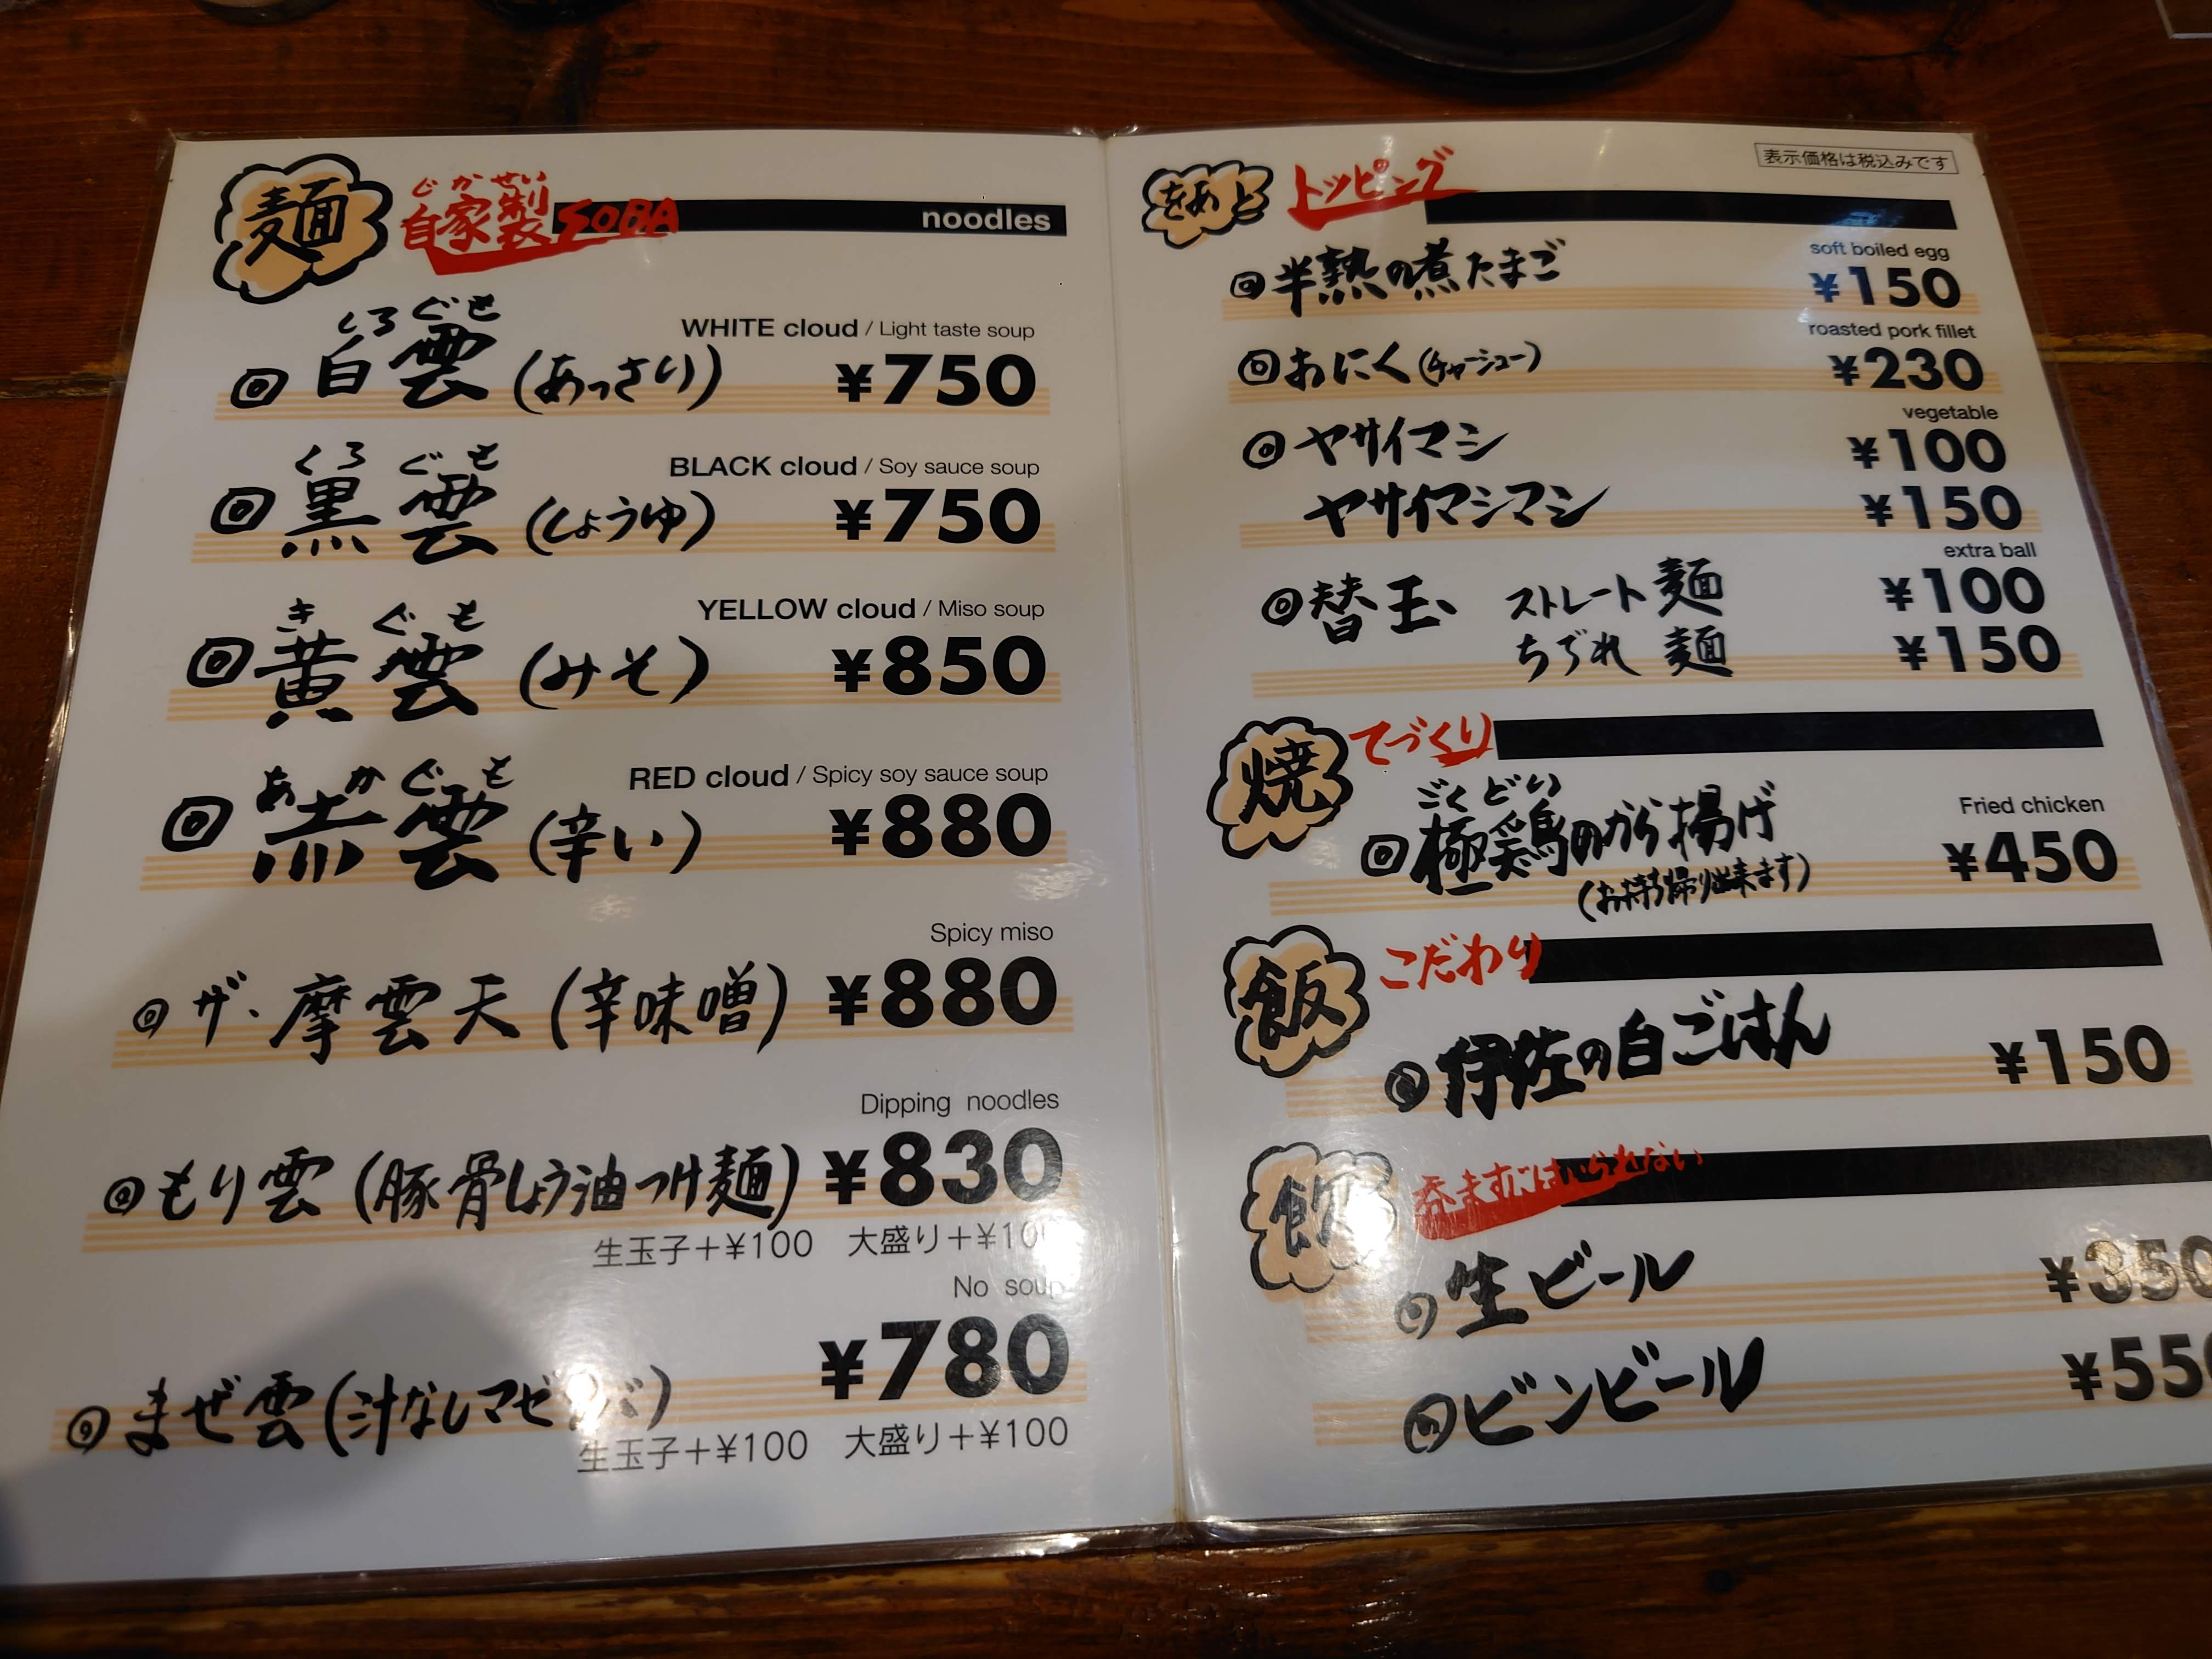 麺
じかせい
自家製 SOBA
noodles
しろぐも
WHITE cloud / Light taste soup
白雲 (あっさり) ¥750
くろぐも
BLACK cloud / Soy sauce soup
黒雲 (しょうゆ) ¥750
きぐも
YELLOW cloud / Miso soup
黄雲 (みそ) ¥850
あかぐも
RED cloud / Spicy soy sauce soup
赤雲 (辛い) ¥880
Spicy miso
ザ・摩雲天 (辛味噌) ¥880
Dipping noodles
もり雲 (豚骨しょう油つけ麺) ¥830
生玉子+¥100 大盛り+¥100
No soup
まぜ雲 (汁なしマゼソバ) ¥780
生玉子+¥100 大盛り+¥100
表示価格は税込みです
トッピング
soft boiled egg
半熟の煮たまご ¥150
roasted pork fillet
おにく (チャーシュー) ¥230
vegetable
ヤサイマシ ¥100
ヤサイマシマシ ¥150
extra ball
替玉 ストレート麺 ¥100
ちぢれ麺 ¥150
焼
てづくり
ごくどい
Fried chicken
極鶏のから揚げ ¥450
(お持ち帰り出来ます)
飯
こだわり
伊佐の白ごはん ¥150
飲
呑まずにはいられない
生ビール ¥350
ビンビール ¥550